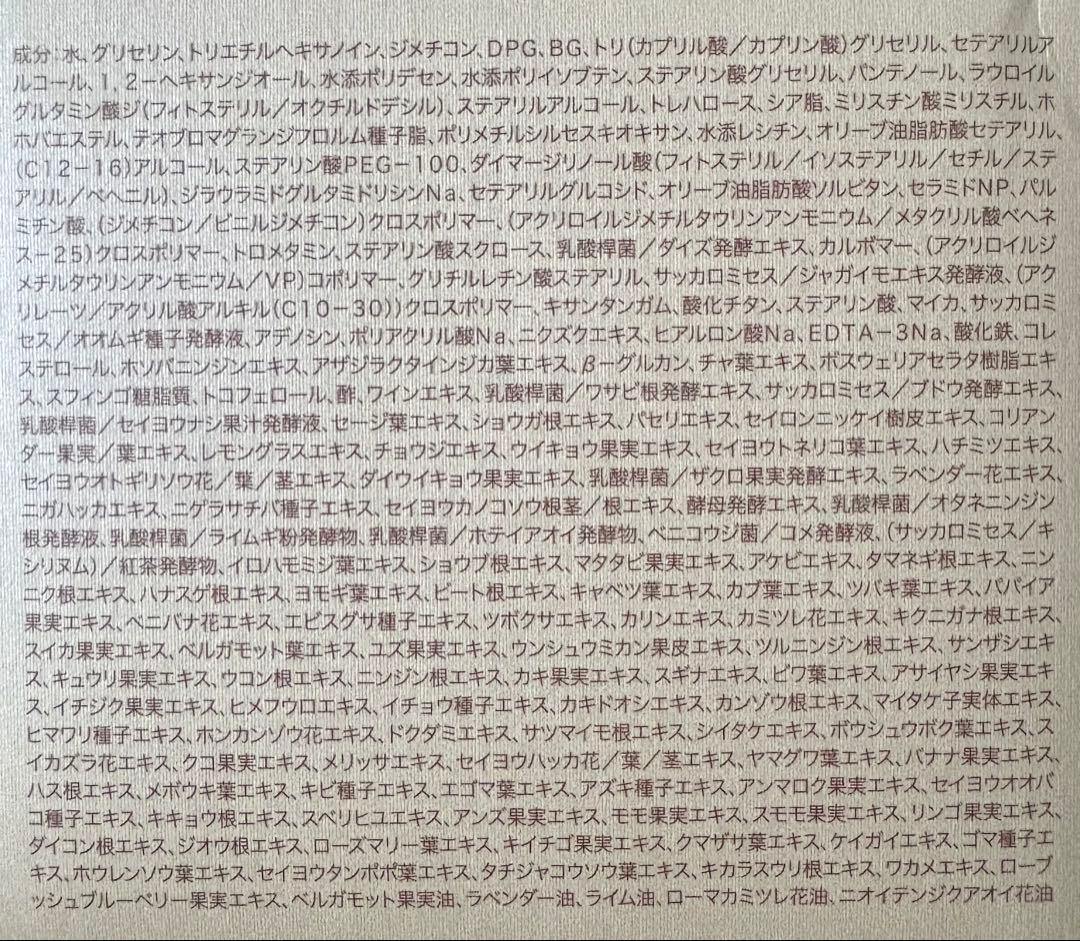 成分:水、グリセリン、トリエチルヘキサノイン、ジメチコン、DPG、BG、トリ(カプリル酸/カプリン酸)グリセリル、セテアリルア
ルコール、1,2-ヘキサンジオール、水添ポリデセン、水添ポリイソブテン、ステアリン酸グリセリル、パンテノール、ラウロイル
グルタミン酸ジ(フィトステリル/オクチルドデシル)、ステアリルアルコール、トレハロース、シア脂、ミリスチン酸ミリスチル、ホ
ホバエステル、テオブロマグランジフロルム種子脂、ポリメチルシルセスキオキサン、水添レシチン、オリーブ油脂肪酸セテアリル、
(C12-16)アルコール、ステアリン酸PEG-100、ダイマージリノール酸(フィトステリル/イソステアリル/セチル/ステ
アリル/ベヘニル)、ジラウラミドグルタミドリシンNa、セテアリルグルコシド、オリーブ油脂肪酸ソルビタン、セラミドNP、パル
ミチン酸、(ジメチコン/ビニルジメチコン)クロスポリマー、(アクリロイルジメチルタウリンアンモニウム/メタクリル酸ベヘネ
ス-25)クロスポリマー、トロメタミン、ステアリン酸スクロース、乳酸桿菌/ダイズ発酵エキス、カルボマー、(アクリロイルジ
メチルタウリンアンモニウム/VP)コポリマー、グリチルレチン酸ステアリル、サッカロミセス/ジャガイモエキス発酵液、(アク
リレーツ/アクリル酸アルキル(C10-30))クロスポリマー、キサンタンガム、酸化チタン、ステアリン酸、マイカ、サッカロミ
セス/オオムギ種子発酵液、アデノシン、ポリアクリル酸Na、ニクズクエキス、ヒアルロン酸Na、EDTA-3Na、酸化鉄、コレ
ステロール、ホソバニンジンエキス、アザジラクタインジカ葉エキス、β-グルカン、チャ葉エキス、ボスウェリアセラタ樹脂エキ
ス、スフィンゴ糖脂質、トコフェロール、酢、ワインエキス、乳酸桿菌/ワサビ根発酵エキス、サッカロミセス/ブドウ発酵エキス、
乳酸桿菌/セイヨウナシ果汁発酵液、セージ葉エキス、ショウガ根エキス、パセリエキス、セイロンニッケイ樹皮エキス、コリアン
ダー果実/葉エキス、レモングラスエキス、チョウジエキス、ウイキョウ果実エキス、セイヨウトネリコ葉エキス、ハチミツエキス、
セイヨウオトギリソウ花/葉/茎エキス、ダイウイキョウ果実エキス、乳酸桿菌/ザクロ果実発酵エキス、ラベンダー花エキス、
ニガハッカエキス、ニゲラサチバ種子エキス、セイヨウカノコソウ根茎/根エキス、酵母発酵エキス、乳酸桿菌/オタネニンジン
根発酵液、乳酸桿菌/ライムギ粉発酵物、乳酸桿菌/ホテイアオイ発酵物、ベニコウジ菌/コメ発酵液、(サッカロミセス/キ
シリヌム)/紅茶発酵物、イロハモミジ葉エキス、ショウブ根エキス、マタタビ果実エキス、アケビエキス、タマネギ根エキス、ニン
ニク根エキス、ハナスゲ根エキス、ヨモギ葉エキス、ビート根エキス、キャベツ葉エキス、カブ葉エキス、ツバキ葉エキス、パパイア
果実エキス、ベニバナ花エキス、エビスグサ種子エキス、ツボクサエキス、カリンエキス、カミツレ花エキス、キクニガナ根エキス、
スイカ果実エキス、ベルガモット葉エキス、ユズ果実エキス、ウンシュウミカン果皮エキス、ツルニンジン根エキス、サンザシエキ
ス、キュウリ果実エキス、ウコン根エキス、ニンジン根エキス、カキ果実エキス、スギナエキス、ビワ葉エキス、アサイヤシ果実エキ
ス、イチジク果実エキス、ヒメフウロエキス、イチョウ種子エキス、カキドオシエキス、カンゾウ根エキス、マイタケ子実体エキス、
ヒマワリ種子エキス、ホンカンゾウ花エキス、ドクダミエキス、サツマイモ根エキス、シイタケエキス、ボウシュウボク葉エキス、ス
イカズラ花エキス、クコ果実エキス、メリッサエキス、セイヨウハッカ花/葉/茎エキス、ヤマグワ葉エキス、バナナ果実エキス、
ハス根エキス、メボウキ葉エキス、キビ種子エキス、エゴマ葉エキス、アズキ種子エキス、アンマロク果実エキス、セイヨウオオバ
コ種子エキス、キキョウ根エキス、スベリヒユエキス、アンズ果実エキス、モモ果実エキス、スモモ果実エキス、リンゴ果実エキス、
ダイコン根エキス、ジオウ根エキス、ローズマリー葉エキス、キイチゴ果実エキス、クマザサ葉エキス、ケイガイエキス、ゴマ種子エ
キス、ホウレンソウ葉エキス、セイヨウタンポポ葉エキス、タチジャコウソウ葉エキス、キカラスウリ根エキス、ワカメエキス、ローブ
ッシュブルーベリー果実エキス、ベルガモット果実油、ラベンダー油、ライム油、ローマカミツレ花油、ニオイテンジクアオイ花油